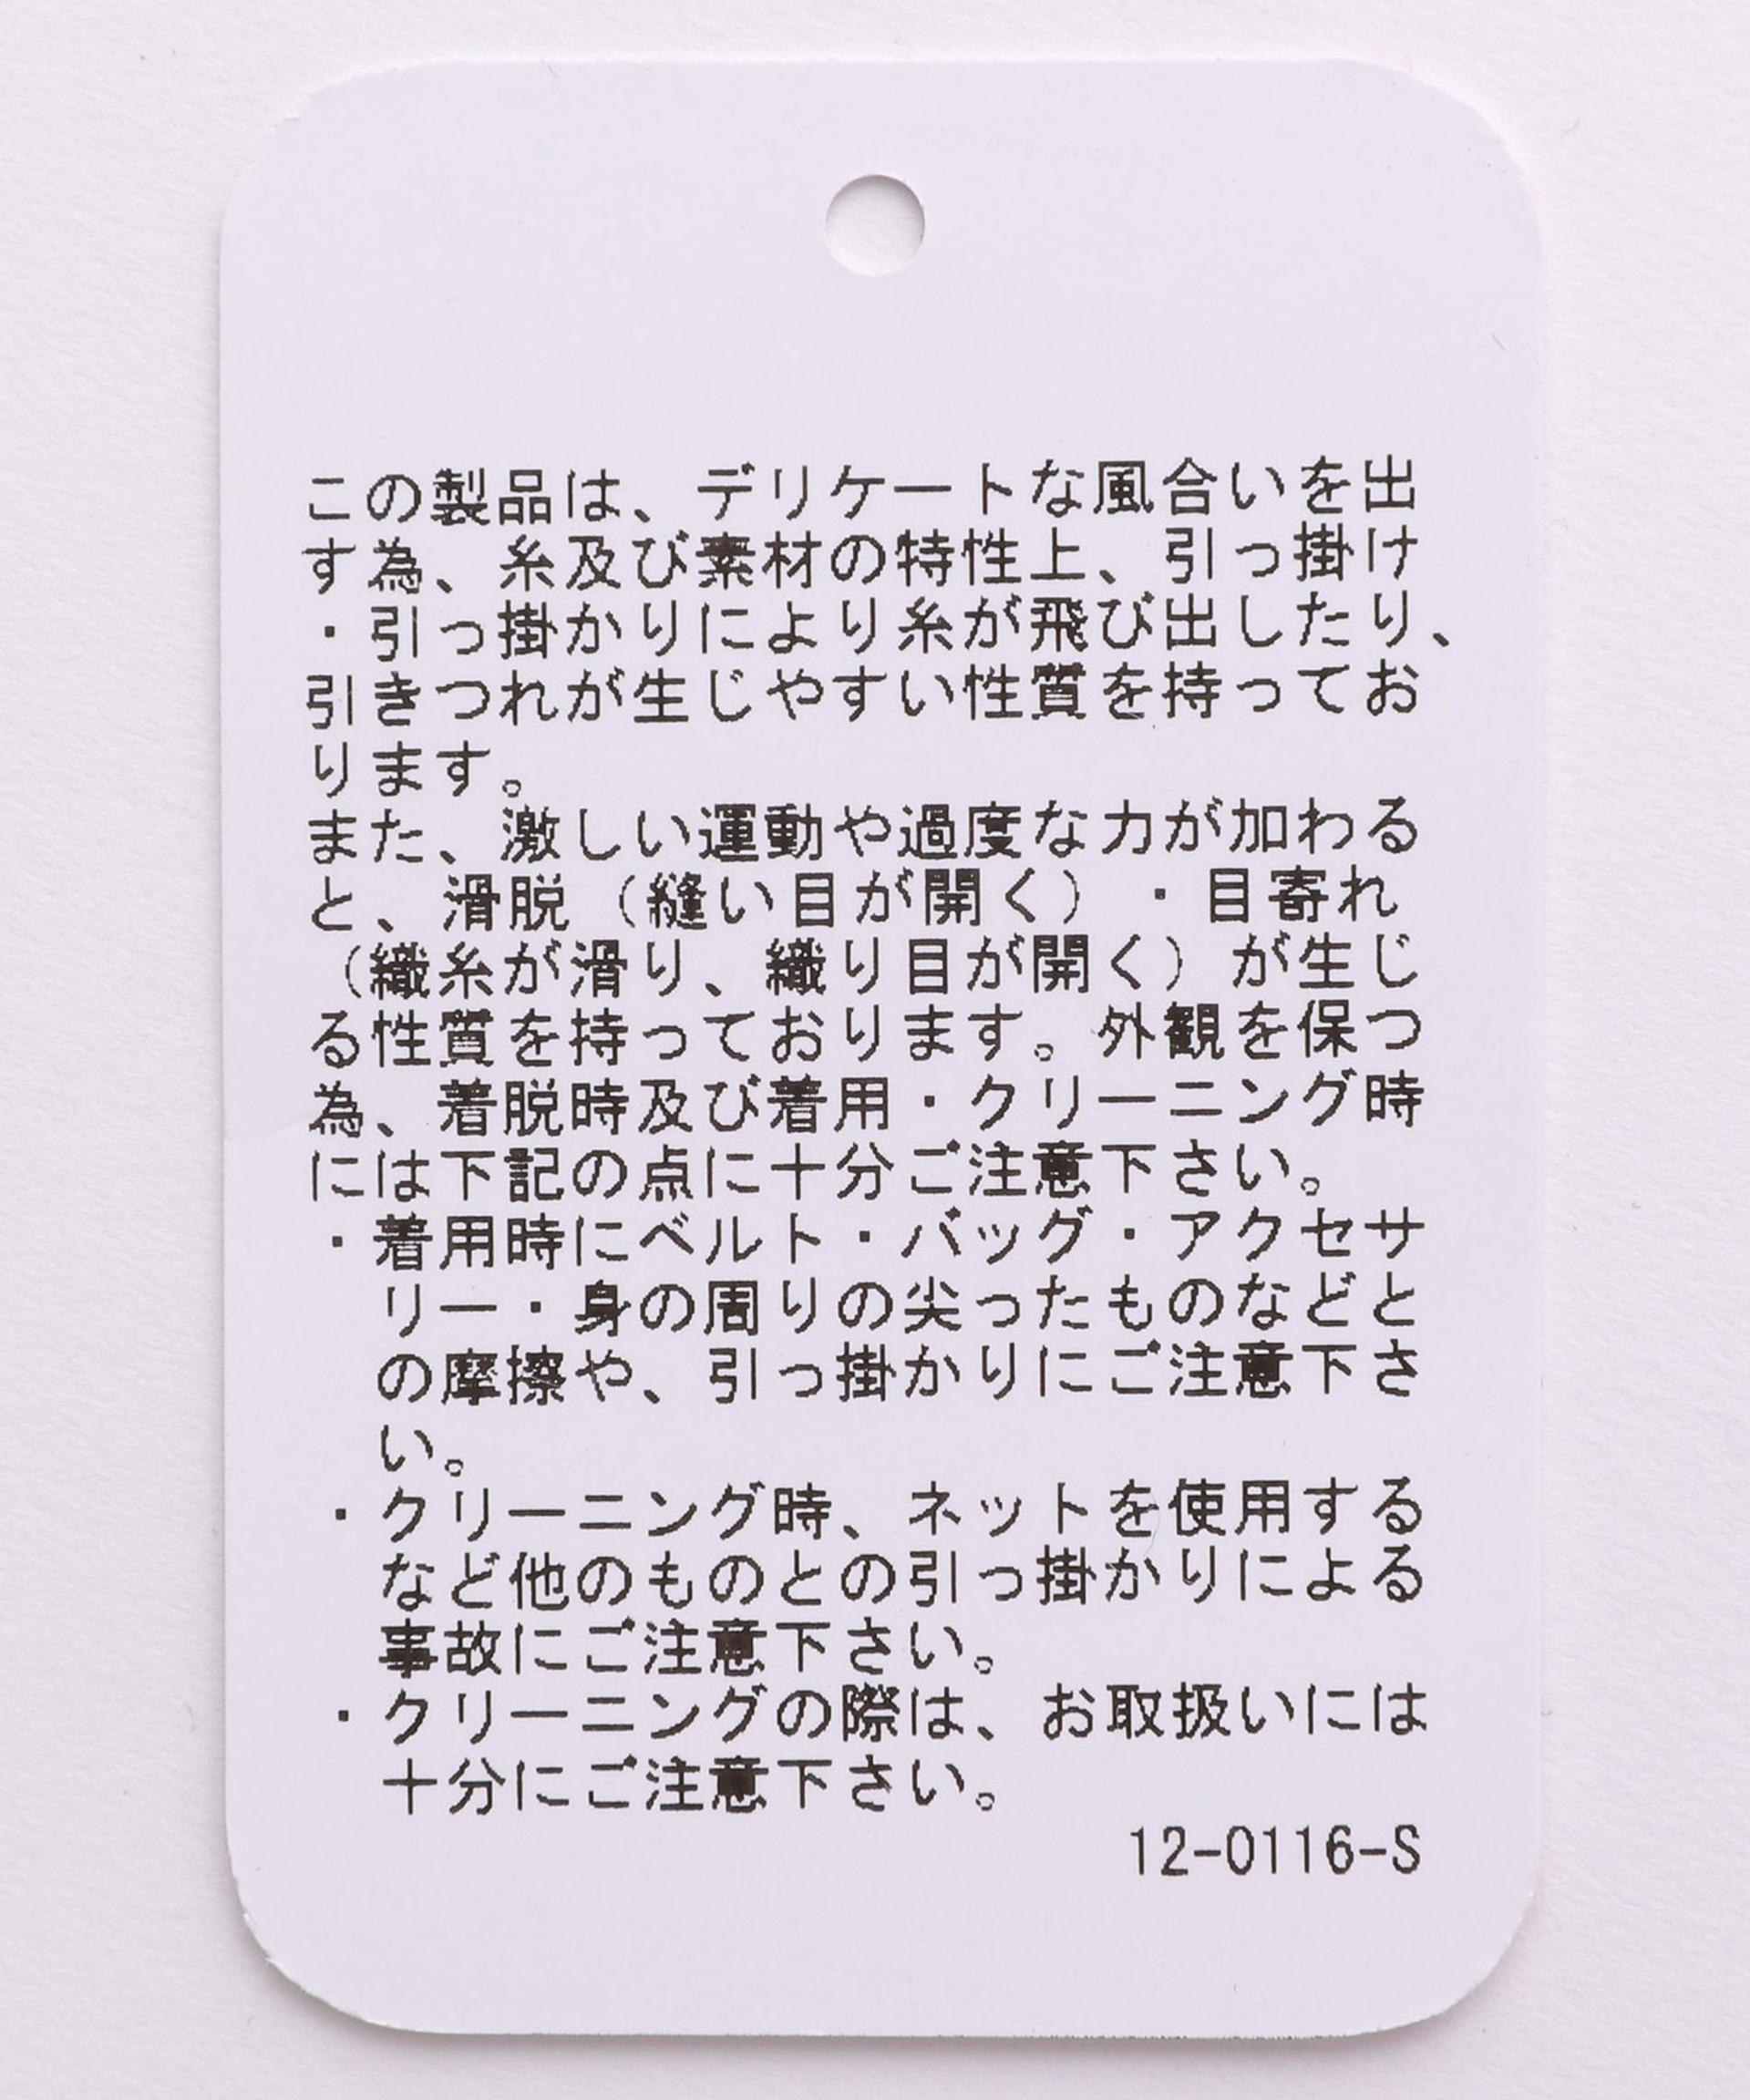 この製品は、デリケートな風合いを出
す為、糸及び素材の特性上、引っ掛け
・引っ掛かりにより糸が飛び出したり、
引きつれが生じやすい性質を持ってお
ります。
また、激しい運動や過度な力が加わる
と、滑脱（縫い目が開く）・目寄れ
（織糸が滑り、織り目が開く）が生じ
る性質を持っております。外観を保つ
為、着脱時及び着用・クリーニング時
には下記の点に十分ご注意下さい。
・着用時にベルト・バッグ・アクセサ
リー・身の周りの尖ったものなどと
の摩擦や、引っ掛かりにご注意下さ
い。
・クリーニング時、ネットを使用する
など他のものとの引っ掛かりによる
事故にご注意下さい。
・クリーニングの際は、お取扱いには
十分にご注意下さい。
12-0116-S